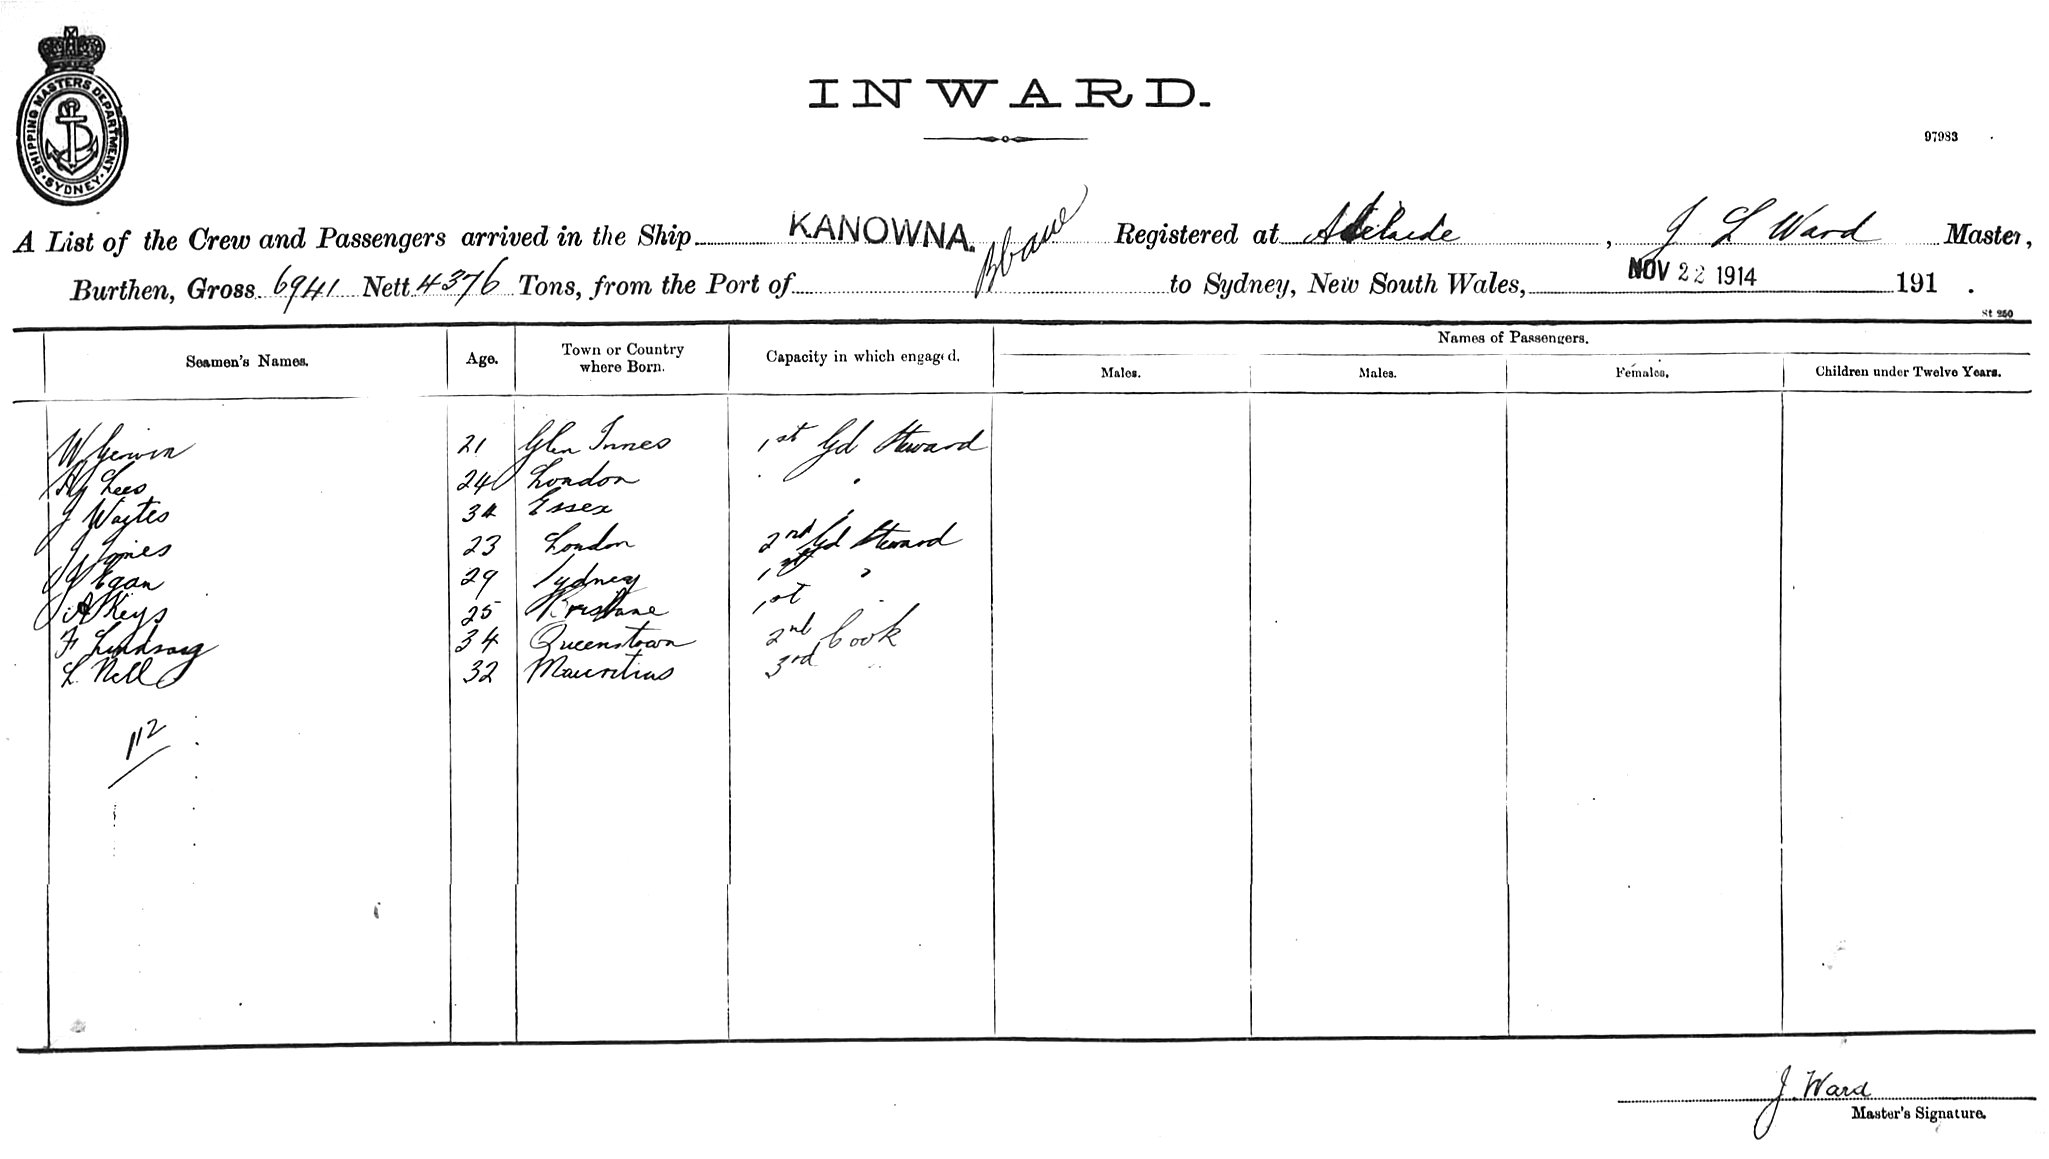 SHIPPING MASTERS DEPARTMENT. SYDNEY.
INWARD.
97983
A List of the Crew and Passengers arrived in the Ship KANOWNA. Registered at Adelaide, J L Ward Master,
Burthen, Gross 6941 Nett 4376 Tons, from the Port of Bbane to Sydney, New South Wales, NOV 22 1914 191 .
St 250
Seamen's Names. Age. Town or Country where Born. Capacity in which engaged. Names of Passengers.
Males. Males. Females. Children under Twelve Years.
W 21 Glen Innes 1st Gd Steward
Hy Lees 24 London "
J Waites 34 Essex "
J Jones 23 London 2nd Gd Steward
J Egan 29 Sydney 1st "
A Keys 25 Brisbane 1st "
F Lindsay 34 Queenstown 2nd Cook
L Nell 32 Mauritius 3rd "
112
J. Ward
Master's Signature.